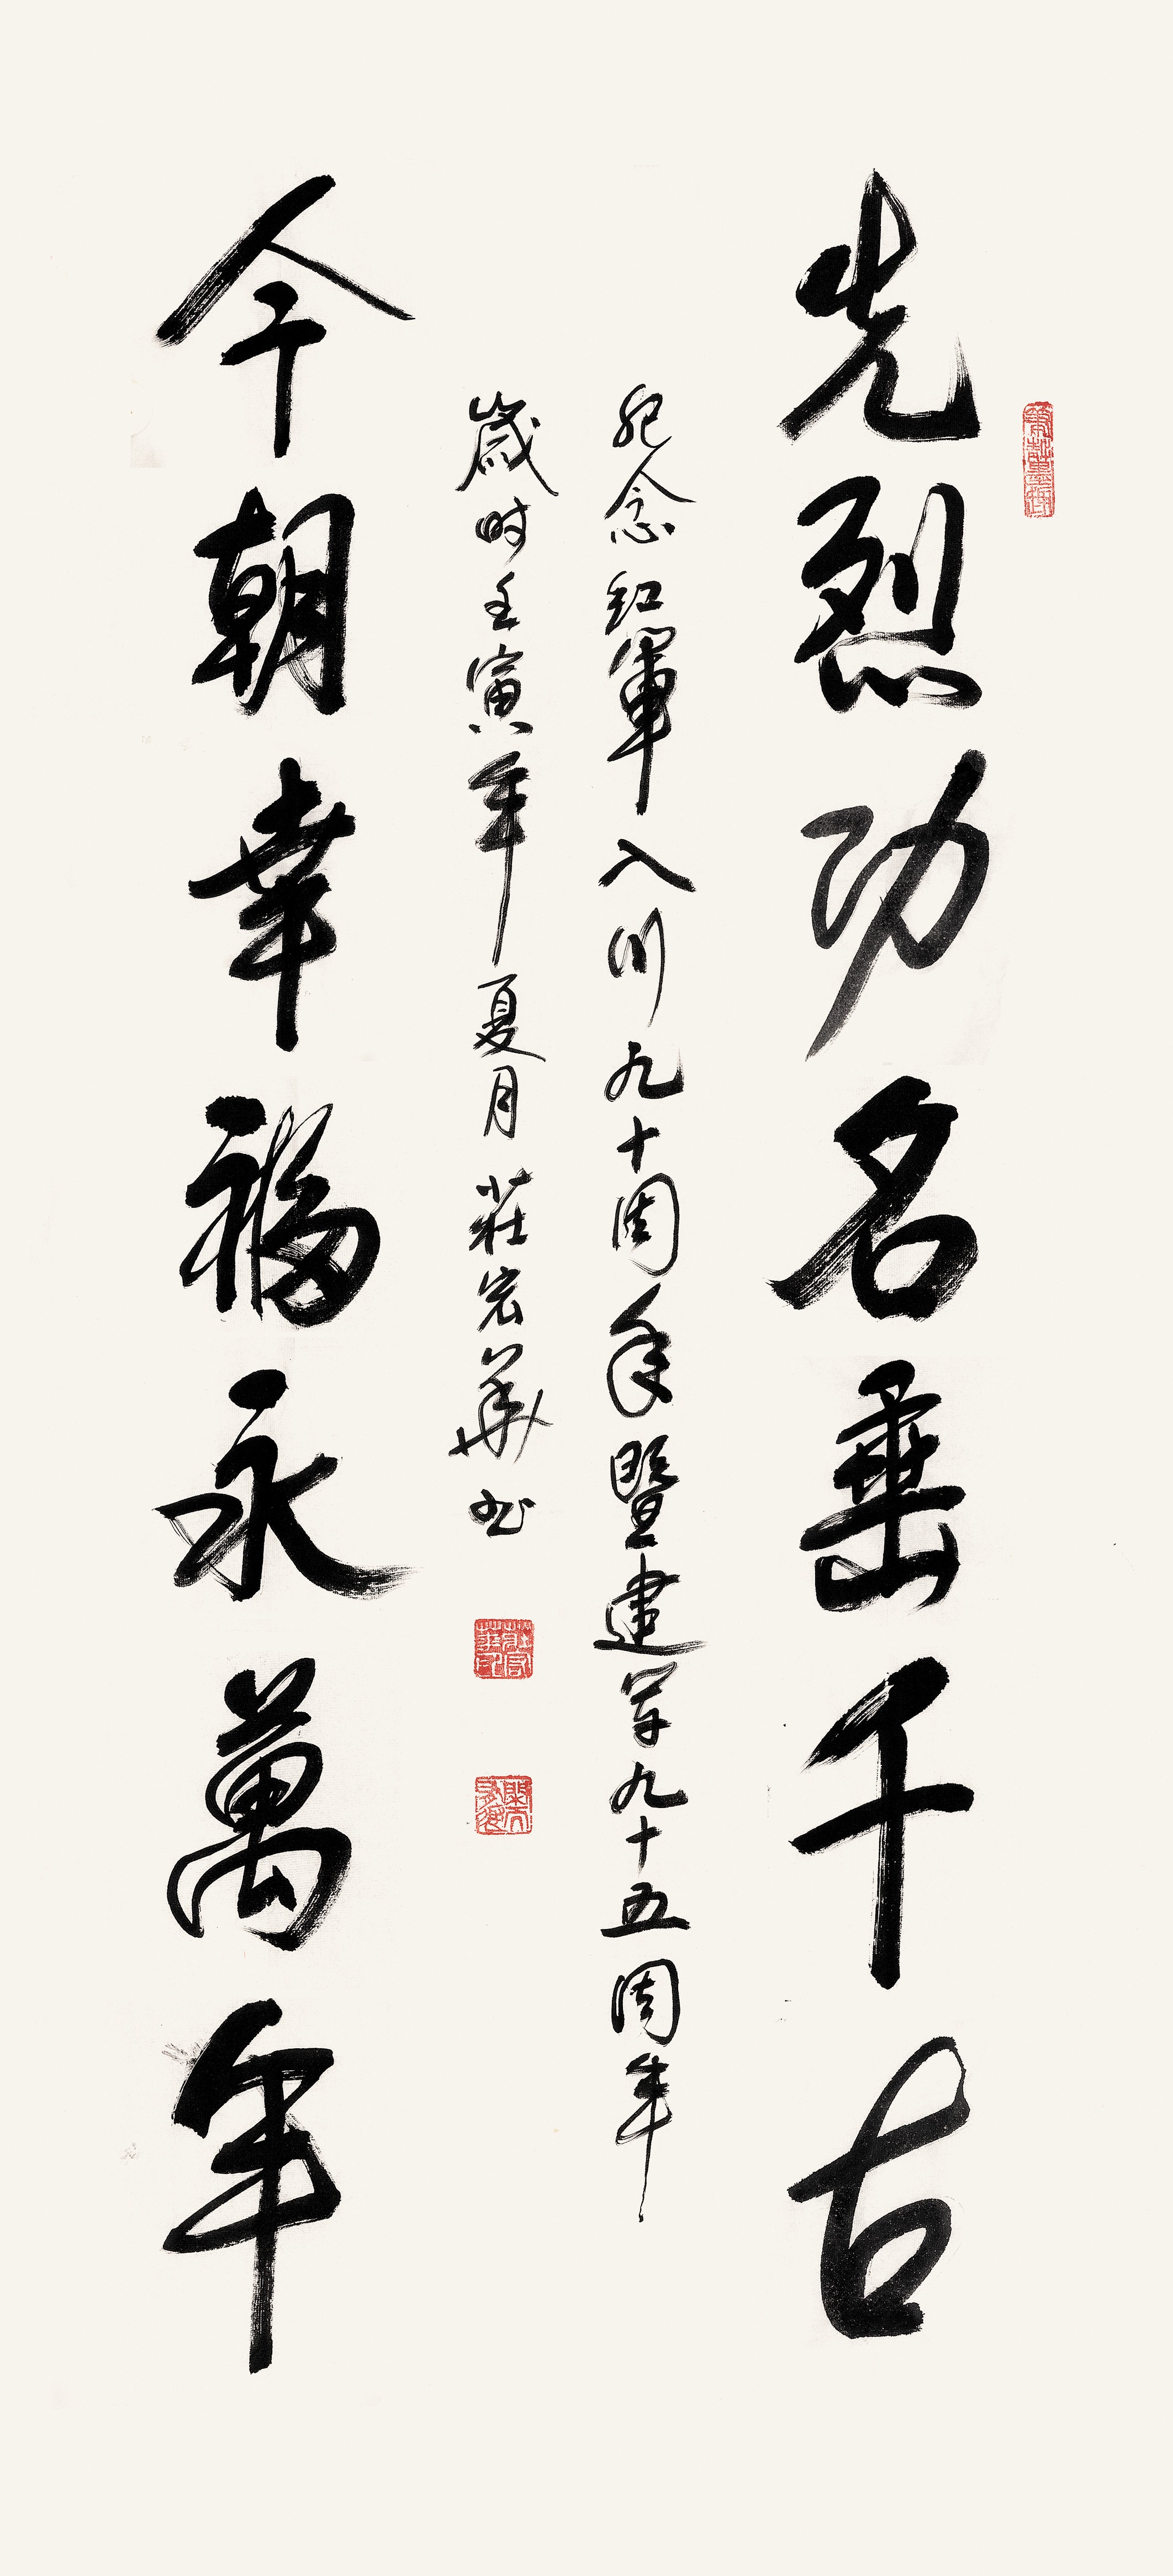 先烈功名垂千古
紀念紅軍入川九十周年暨建军九十五周年
歲时壬寅年夏月莊宏華书
今朝幸福永萬年